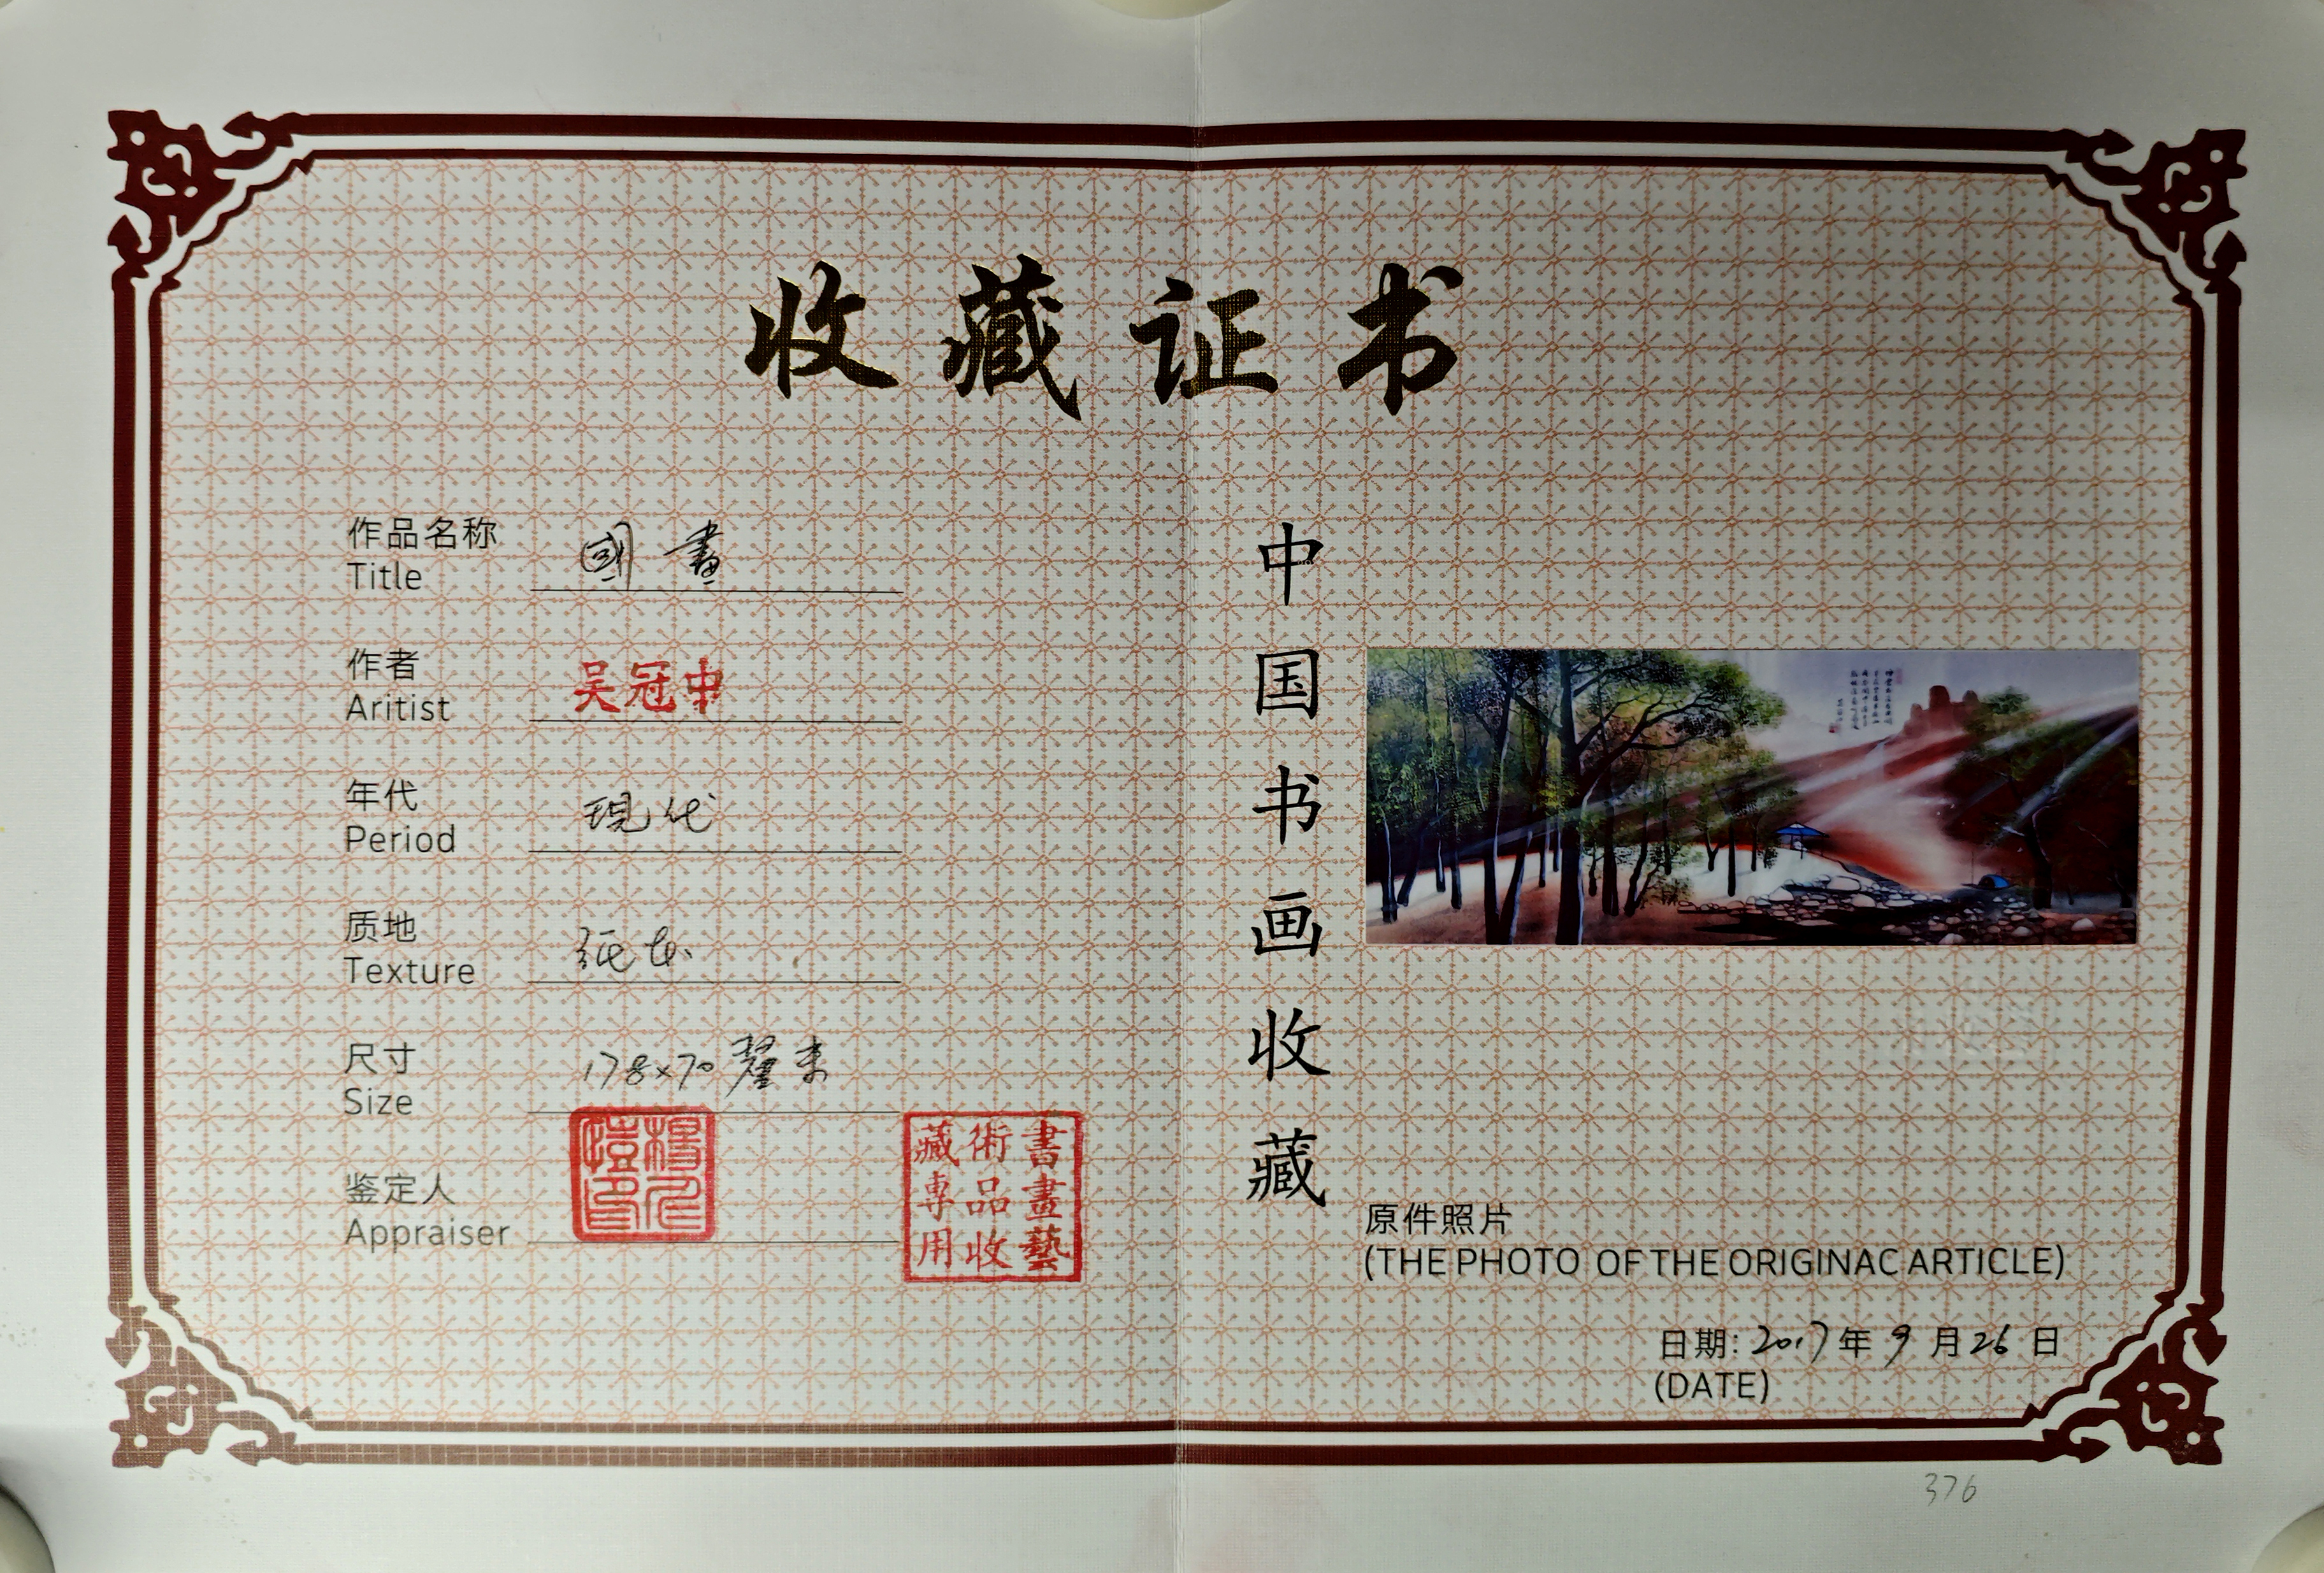 收藏证书
作品名称
Title
國畫
作者
Aritist
吴冠中
年代
Period
現代
质地
Texture
纸本
尺寸
Size
178×70釐米
鉴定人
Appraiser
書畫藝
術品收
藏專用
中国书画收藏
原件照片
(THE PHOTO OF THE ORIGINAC ARTICLE)
日期: 2017年9月26日
(DATE)
376